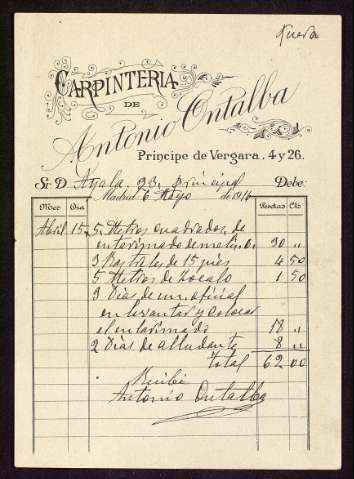 CARPINTERIA
DE
Antonio Ontalba
Principe de Vergara. 4 y 26.
Sr. D. Ayala 93. principal Debe:
Madrid 6 Mayo de 191
Mes Dia Pesetas Cts
Abril 15 5 Metros cuadrados de
entarimado de 30 "
3 de 15 pies 4 50
5 Metros de zocalo 1 50
3 Dias de un oficial
en levantar y colocar
el entarimado 18 "
2 Dias de alludante 8 "
total 62 00
Recibi
Antonio Ontalba